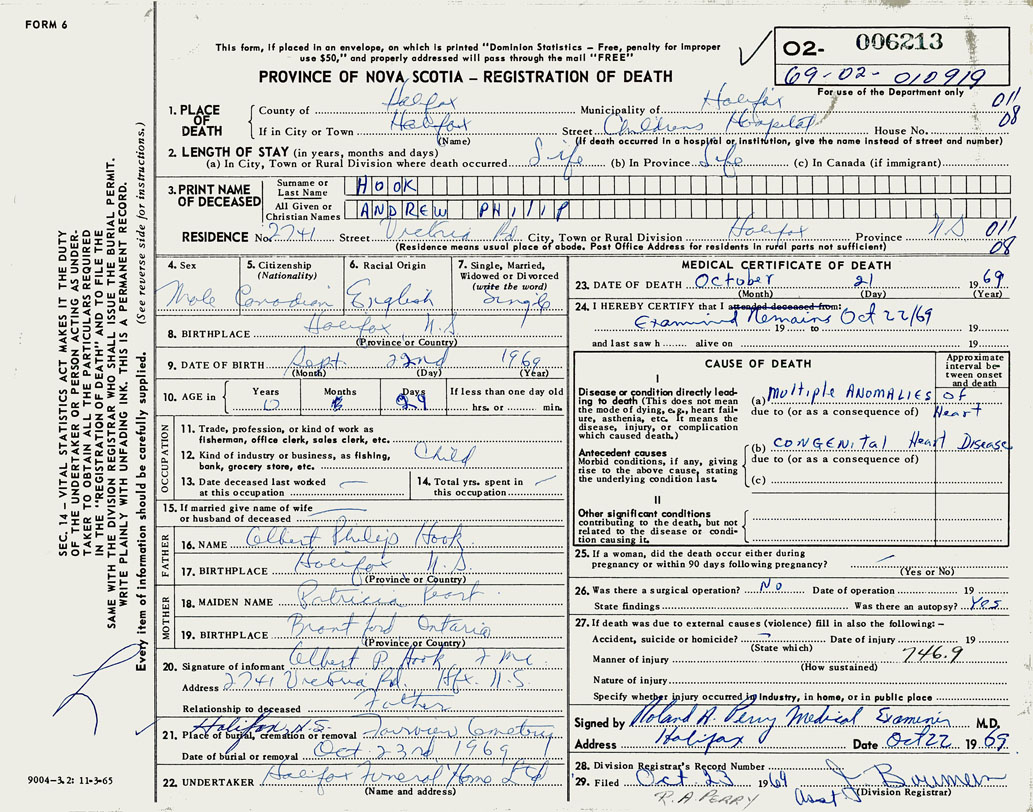 FORM 6
This form, if placed in an envelope, on which is printed "Dominion Statistics – Free, penalty for improper
use $50," and properly addressed will pass through the mail "FREE"
PROVINCE OF NOVA SCOTIA – REGISTRATION OF DEATH
02- 006213
69-02- 010919
For use of the Department only
1. PLACE OF DEATH
County of Halifax Municipality of Halifax 011
If in City or Town Halifax Street Childrens Hospital House No. 08
(Name) (If death occurred in a hospital or institution, give the name instead of street and number)
2. LENGTH OF STAY (in years, months and days)
(a) In City, Town or Rural Division where death occurred Life (b) In Province Life (c) In Canada (if immigrant)
3. PRINT NAME OF DECEASED
Surname or Last Name HOOK
All Given or Christian Names ANDREW PHILIP
RESIDENCE No. 2741 Street Victoria Rd. City, Town or Rural Division Halifax Province N S 011
(Residence means usual place of abode. Post Office Address for residents in rural parts not sufficient) 08
4. Sex
Male
5. Citizenship (Nationality)
Canadian
6. Racial Origin
English
7. Single, Married, Widowed or Divorced (write the word)
Single
8. BIRTHPLACE Halifax N.S
(Province or Country)
9. DATE OF BIRTH Sept 22nd 1969
(Month) (Day) (Year)
10. AGE in
Years
Months
Days
29
If less than one day old
hrs. or min.
OCCUPATION
11. Trade, profession, or kind of work as
fisherman, office clerk, sales clerk, etc.
12. Kind of industry or business, as fishing,
bank, grocery store, etc. Child
13. Date deceased last worked
at this occupation
14. Total yrs. spent in
this occupation
15. If married give name of wife
or husband of deceased
FATHER
16. NAME Albert Philip Hook
17. BIRTHPLACE Halifax N.S
(Province or Country)
MOTHER
18. MAIDEN NAME Patricia
19. BIRTHPLACE Brantford Ontario
(Province or Country)
20. Signature of informant Albert P. Hook
Address 2741 Victoria Rd. Hfx. N.S.
Relationship to deceased Father
Halifax N.S.
21. Place of burial, cremation or removal Fairview Cemetery
Date of burial or removal Oct 23rd 1969
22. UNDERTAKER Halifax Funeral Home Ltd
(Name and address)
MEDICAL CERTIFICATE OF DEATH
23. DATE OF DEATH October 21 1969
(Month) (Day) (Year)
24. I HEREBY CERTIFY that I attended deceased from:
Examined Remains Oct 22/69
19 to 19
and last saw h alive on 19
CAUSE OF DEATH
Approximate interval between onset and death
I
Disease or condition directly leading to death (This does not
mean the mode of dying, e.g., heart failure, asthenia, etc. It means the
disease, injury, or complication
which caused death.)
(a) Multiple ANOMALIES of
due to (or as a consequence of) Heart
Antecedent causes
Morbid conditions, if any, giving
rise to the above cause, stating
the underlying condition last.
(b) CONGENITAL Heart Disease
due to (or as a consequence of)
(c)
II
Other significant conditions
contributing to the death, but not
related to the disease or condition causing it.
25. If a woman, did the death occur either during
pregnancy or within 90 days following pregnancy?
(Yes or No)
26. Was there a surgical operation? No Date of operation 19
State findings Was there an autopsy? Yes
27. If death was due to external causes (violence) fill in also the following: –
Accident, suicide or homicide? Date of injury 19
(State which)
Manner of injury 746.9
(How sustained)
Nature of injury
Specify whether injury occurred in Industry, in home, or in public place
Signed by Roland A. Perry Medical Examiner M.D.
Address Halifax Date Oct 22 1969
28. Division Registrar's Record Number
29. Filed Oct. 23 1969 J Bowman
Asst (Division Registrar)
R.A. PERRY
SEC. 14 – VITAL STATISTICS ACT MAKES IT THE DUTY
OF THE UNDERTAKER OR PERSON ACTING AS UNDER-
TAKER TO OBTAIN ALL THE PARTICULARS REQUIRED
IN THE "REGISTRATION OF DEATH" AND TO FILE THE
SAME WITH THE DIVISION REGISTRAR WHO SHALL ISSUE THE BURIAL PERMIT.
WRITE PLAINLY WITH UNFADING INK. THIS IS A PERMANENT RECORD.
Every item of information should be carefully supplied. (See reverse side for instructions.)
9004-3.2: 11-3-65